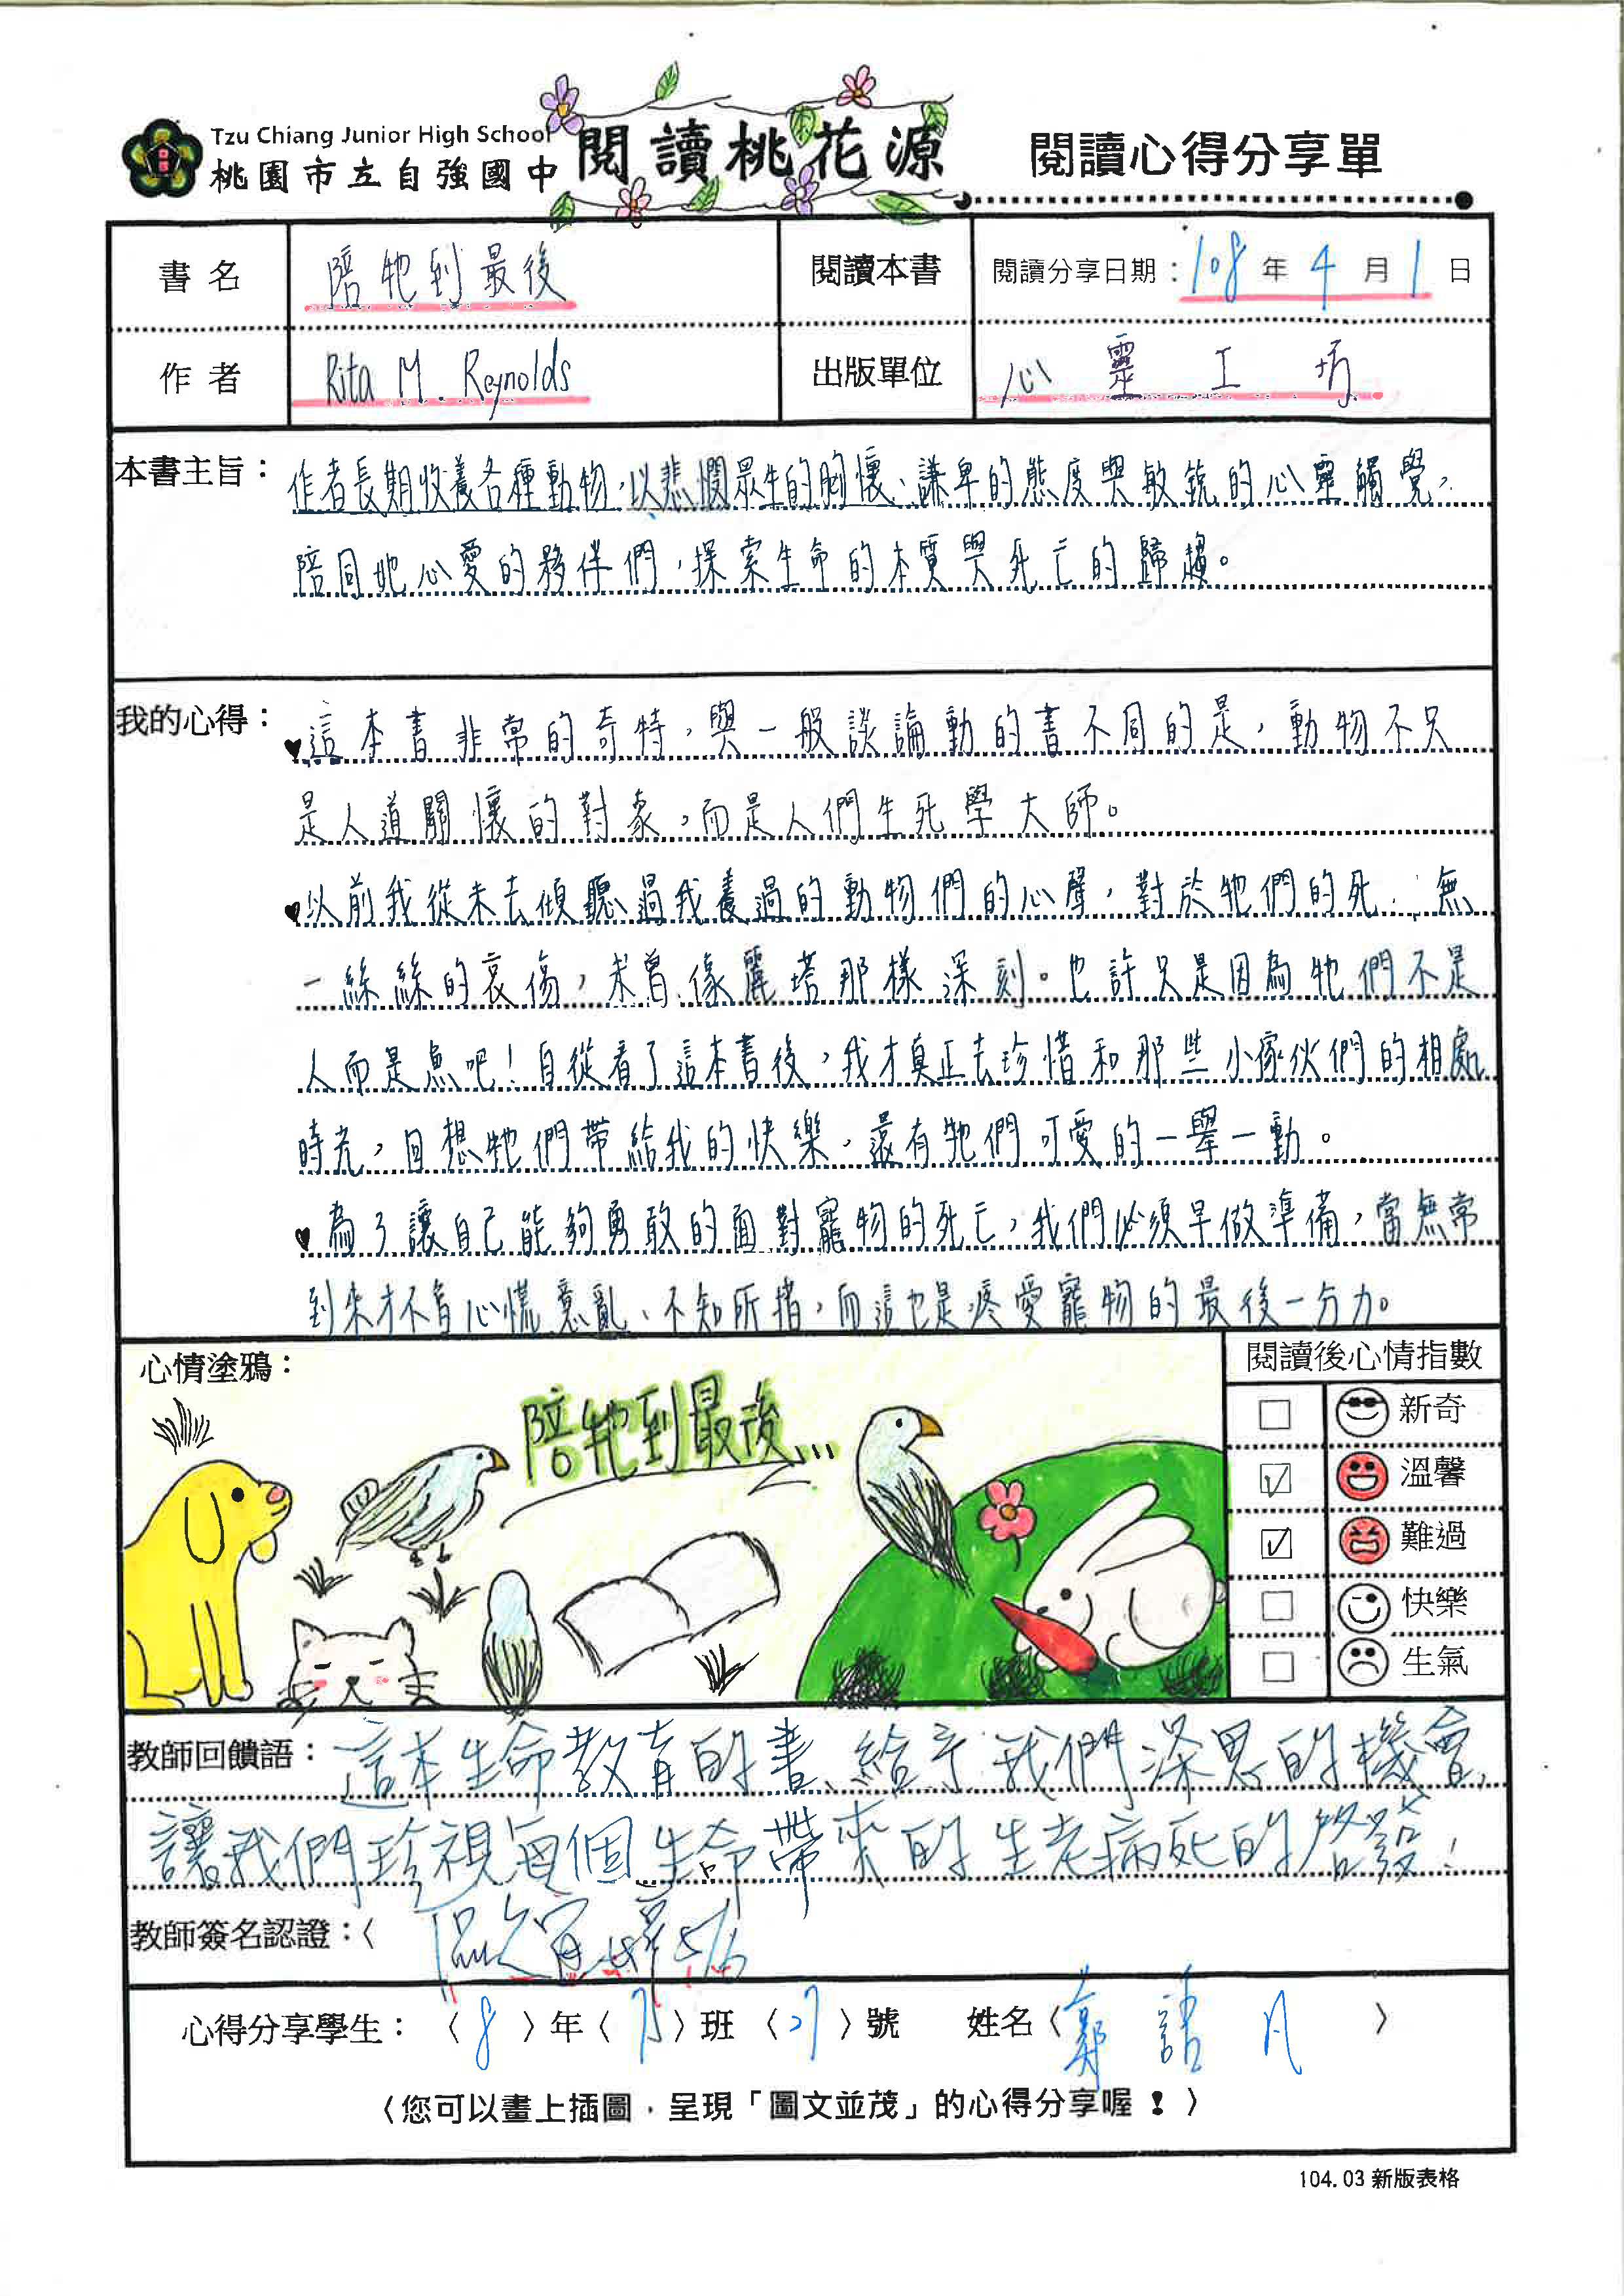 Tzu Chiang Junior High School
桃園市立自強國中 閱讀桃花源 閱讀心得分享單
書名 陪牠到最後 閱讀本書 閱讀分享日期：108年4月1日
作者 Rita M. Reynolds 出版單位 心靈工坊
本書主旨：作者長期收養各種動物，以悲憫眾生的胸懷、謙卑的態度與敏銳的心靈觸覺，
陪同她心愛的夥伴們，探索生命的本質與死亡的歸趨。
我的心得：♥這本書非常的奇特，與一般談論動的書不同的是，動物不只
是人道關懷的對象，而是人們生死學大師。
♥以前我從未去傾聽過我養過的動物們的心聲，對於牠們的死，無
一絲絲的哀傷，未曾像麗塔那樣深刻。也許只是因為牠們不是
人而是魚吧！自從看了這本書後，我才真正去珍惜和那些小傢伙們的相處
時光，回想牠們帶給我的快樂，還有牠們可愛的一舉一動。
♥為了讓自己能夠勇敢的面對寵物的死亡，我們必須早做準備，當無常
到來才不會心慌意亂、不知所措，而這也是疼愛寵物的最後一分力。
心情塗鴉：
陪牠到最後...
閱讀後心情指數
新奇
✓ 溫馨
✓ 難過
快樂
生氣
教師回饋語：這本生命教育的書、給予我們深思的機會，
讓我們珍視每個生命帶來的生老病死的啓發！
教師簽名認證：〈
心得分享學生：〈8〉年〈〉班〈27〉號 姓名〈鄭〉
〈您可以畫上插圖，呈現「圖文並茂」的心得分享喔！〉
104.03 新版表格